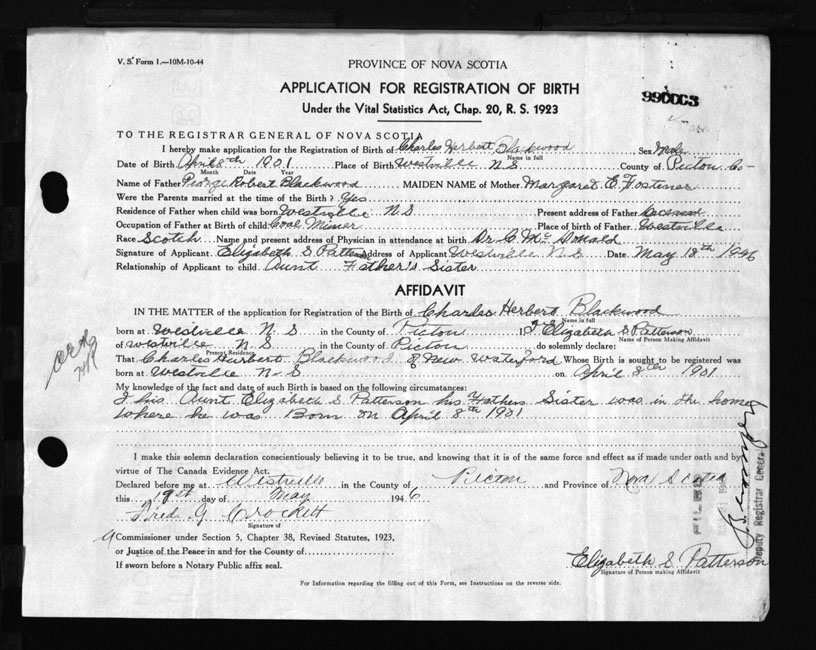 V. S. Form 1.—10M-10-44
PROVINCE OF NOVA SCOTIA
APPLICATION FOR REGISTRATION OF BIRTH
Under the Vital Statistics Act, Chap. 20, R. S. 1923
990003
TO THE REGISTRAR GENERAL OF NOVA SCOTIA
I hereby make application for the Registration of Birth of Charles Herbert Blackwood Sex Male
Name in full
Date of Birth April 8th 1901 Place of Birth Westville N S County of Picton Co-
Month Date Year
Name of Father George Robert Blackwood MAIDEN NAME of Mother Margaret E
Were the Parents married at the time of the Birth? Yes
Residence of Father when child was born Westville N S Present address of Father Deceased
Occupation of Father at Birth of child Coal Miner Place of birth of Father Westville
Race Scotch Name and present address of Physician in attendance at birth Dr C Mc Donald
Signature of Applicant Elizabeth S Patterson Address of Applicant Westville N S Date May 18th 1946
Relationship of Applicant to child Aunt Father's Sister
AFFIDAVIT
IN THE MATTER of the application for Registration of the Birth of Charles Herbert Blackwood
Name in full
born at Westville N S in the County of Picton I, I Elizabeth S Patterson
Name of Person Making Affidavit
of Westville N S in the County of Picton do solemnly declare:
Present Residence
That Charles Hurbert Blackwood of New Waterford Whose Birth is sought to be registered was
born at Westville N S on April 8th 1901
My knowledge of the fact and date of such Birth is based on the following circumstances:
I his Aunt Elizabeth S Patterson his Fathers Sister was in the home
where he was Born on April 8th 1901
I make this solemn declaration conscientiously believing it to be true, and knowing that it is of the same force and effect as if made under oath and by
virtue of The Canada Evidence Act.
Declared before me at Westville in the County of Picton and Province of Nova Scotia
this day of May 1946
Fred G Crockett
Signature of
A Commissioner under Section 5, Chapter 38, Revised Statutes, 1923,
or Justice of the Peace in and for the County of
If sworn before a Notary Public affix seal.
Elizabeth S Patterson
Signature of Person making Affidavit
For Information regarding the filling out of this Form, see Instructions on the reverse side.
FILED
Deputy Registrar General